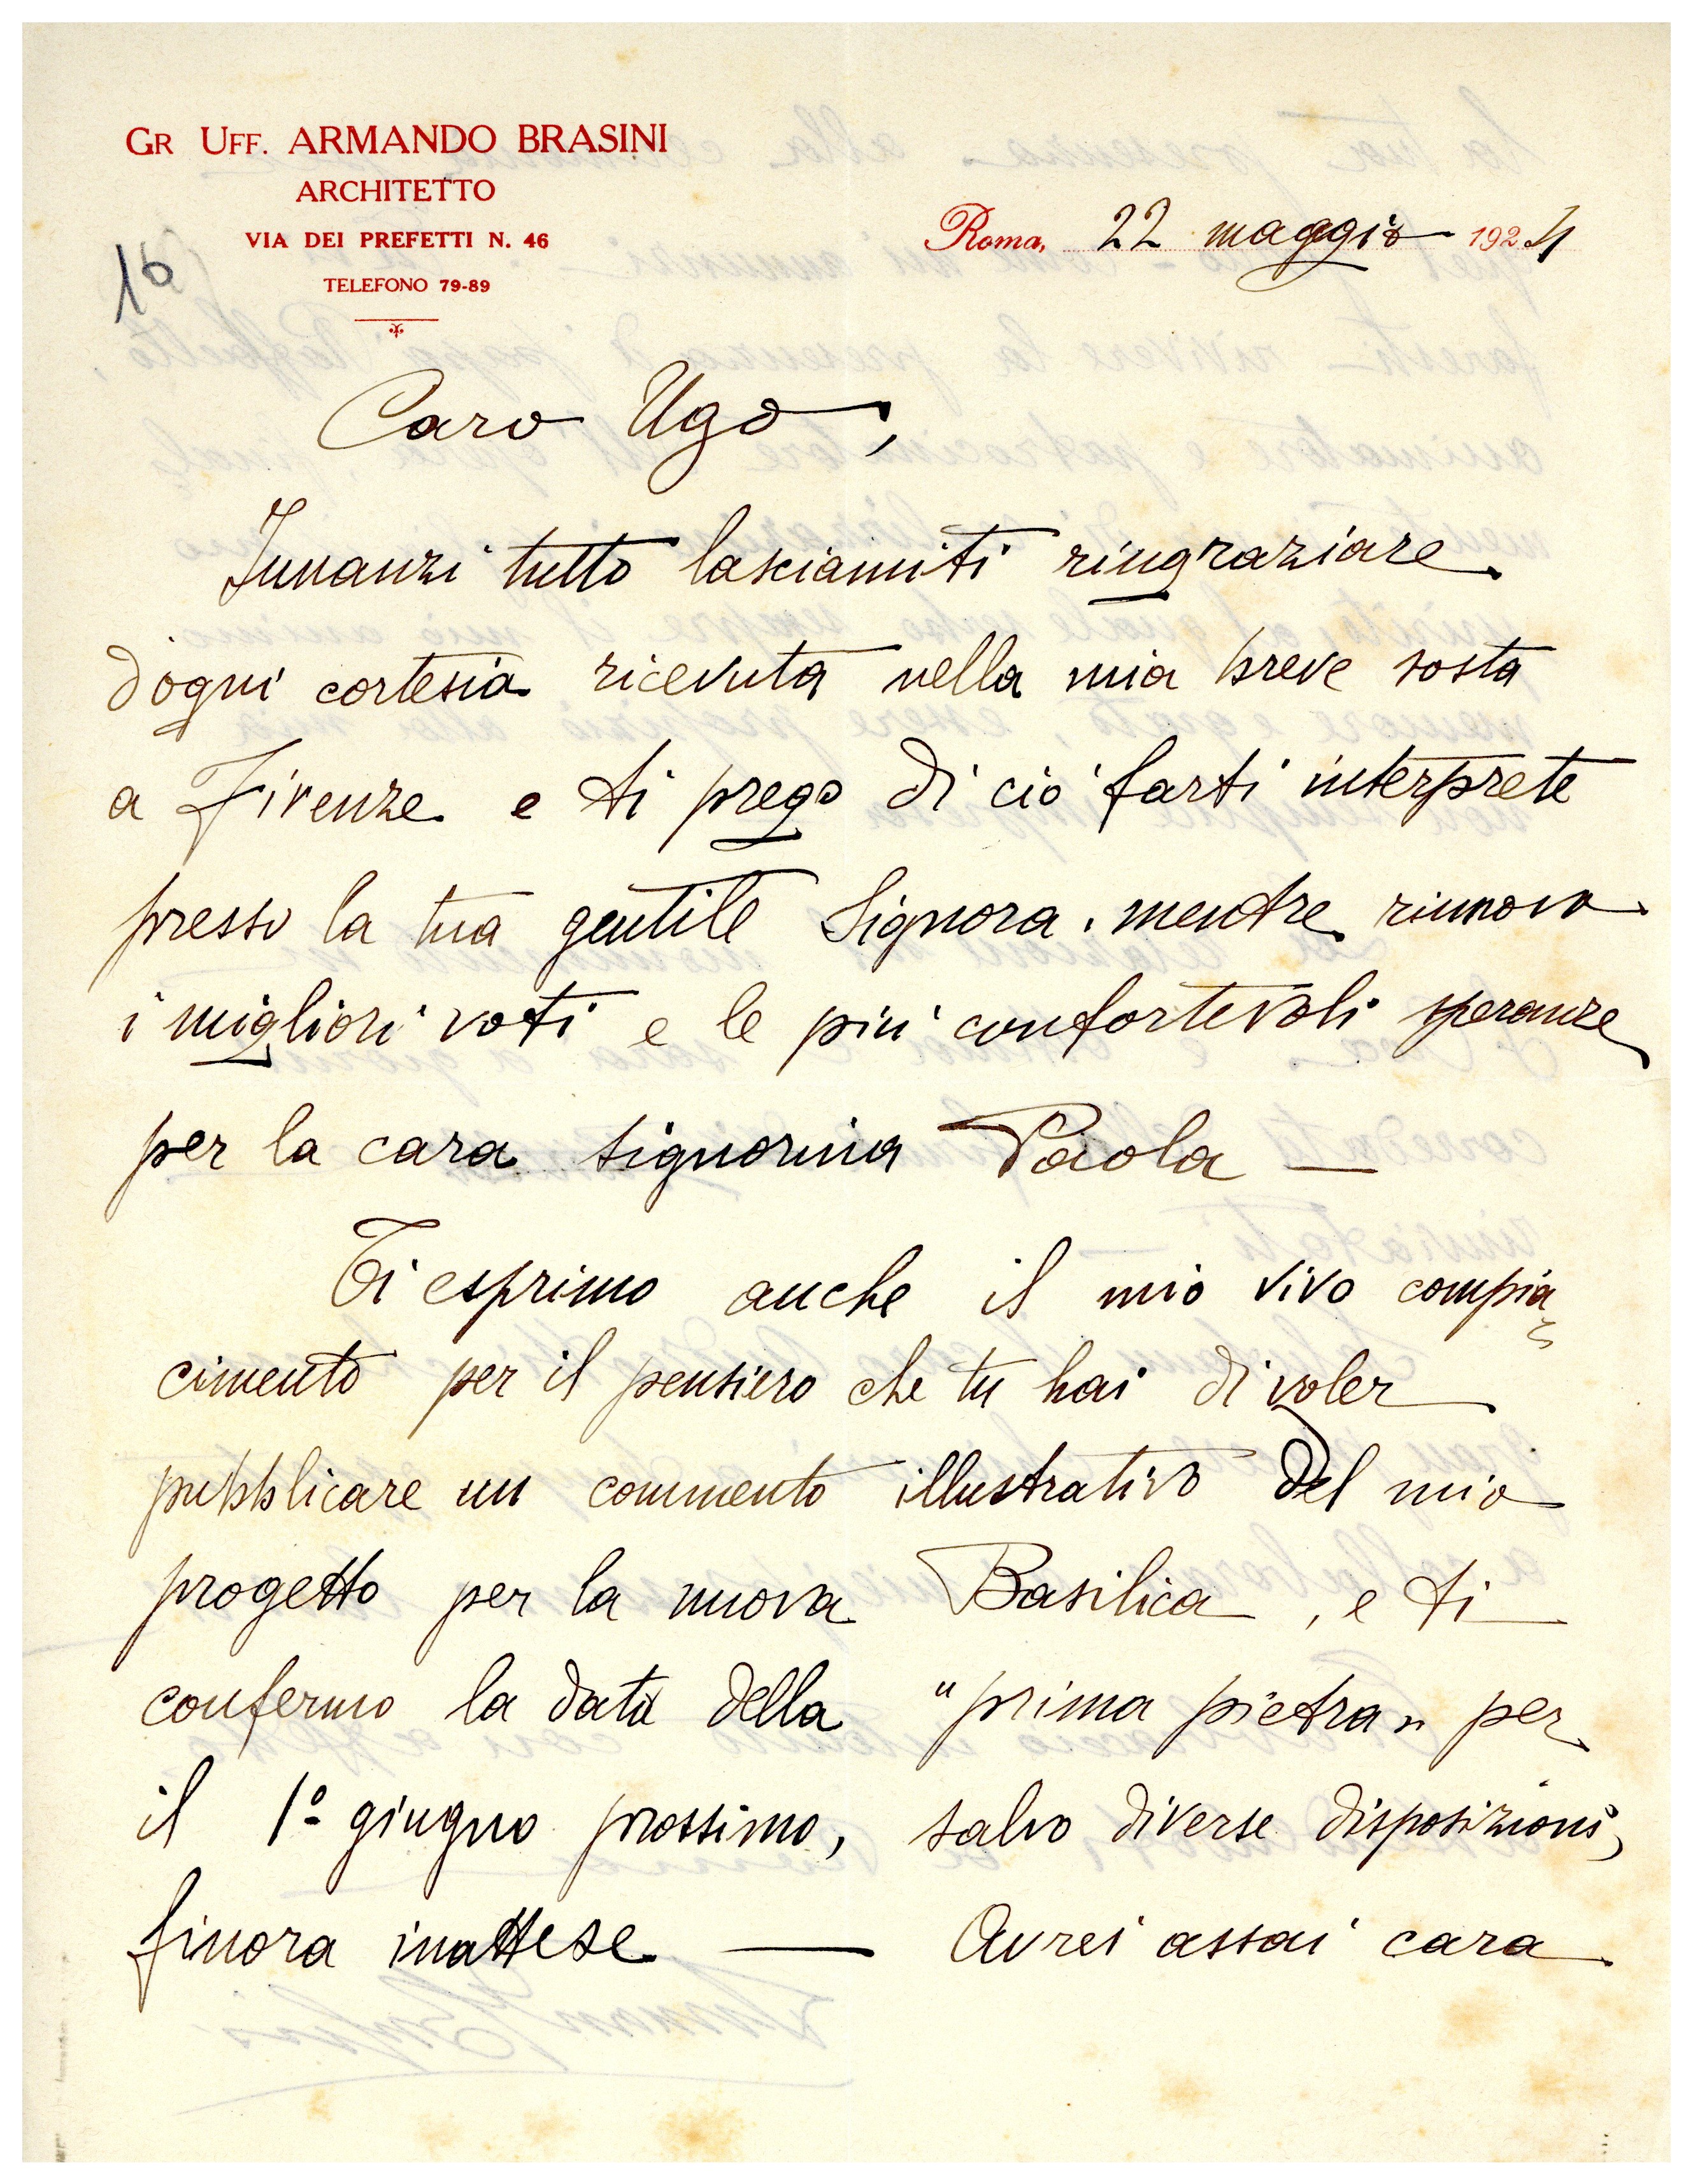 GR UFF. ARMANDO BRASINI
ARCHITETTO
VIA DEI PREFETTI N. 46
TELEFONO 79-89
Roma, 22 maggio 1924
16
Caro Ugo,
Innanzi tutto lasciamiti ringraziare
d'ogni cortesia ricevuta nella mia breve sosta
a Firenze e ti prego di ciò farti interprete
presso la tua gentile Signora, mentre rinnovo
i migliori voti e le più confortevoli speranze
per la cara signorina Paola —
Ti esprimo anche il mio vivo compia
cimento per il pensiero che tu hai di voler
pubblicare un commento illustrativo del mio
progetto per la nuova Basilica, e ti
confermo la data della "prima pietra" per
il 1º giugno prossimo, salvo diverse disposizioni,
finora inattese — Avrei assai cara